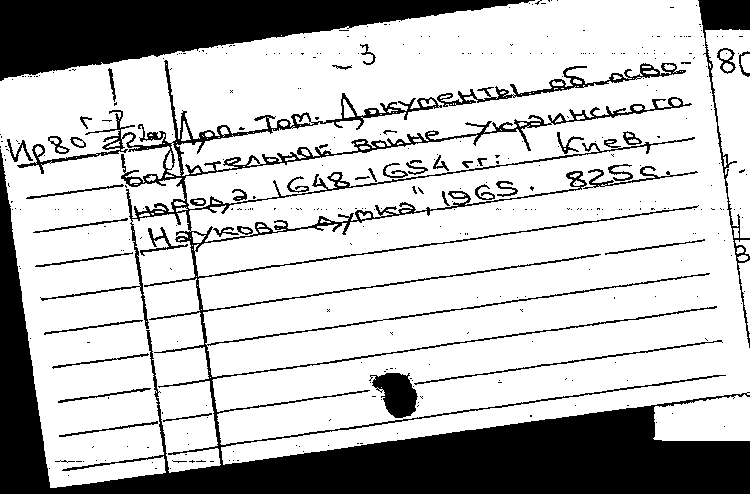 - 3
Доп. том. Документы об осво-
Ир80
бодительной войне Украинского
народа. 1648-1654 гг. Киев,
Наукова думка", 1965. 825 с.
80